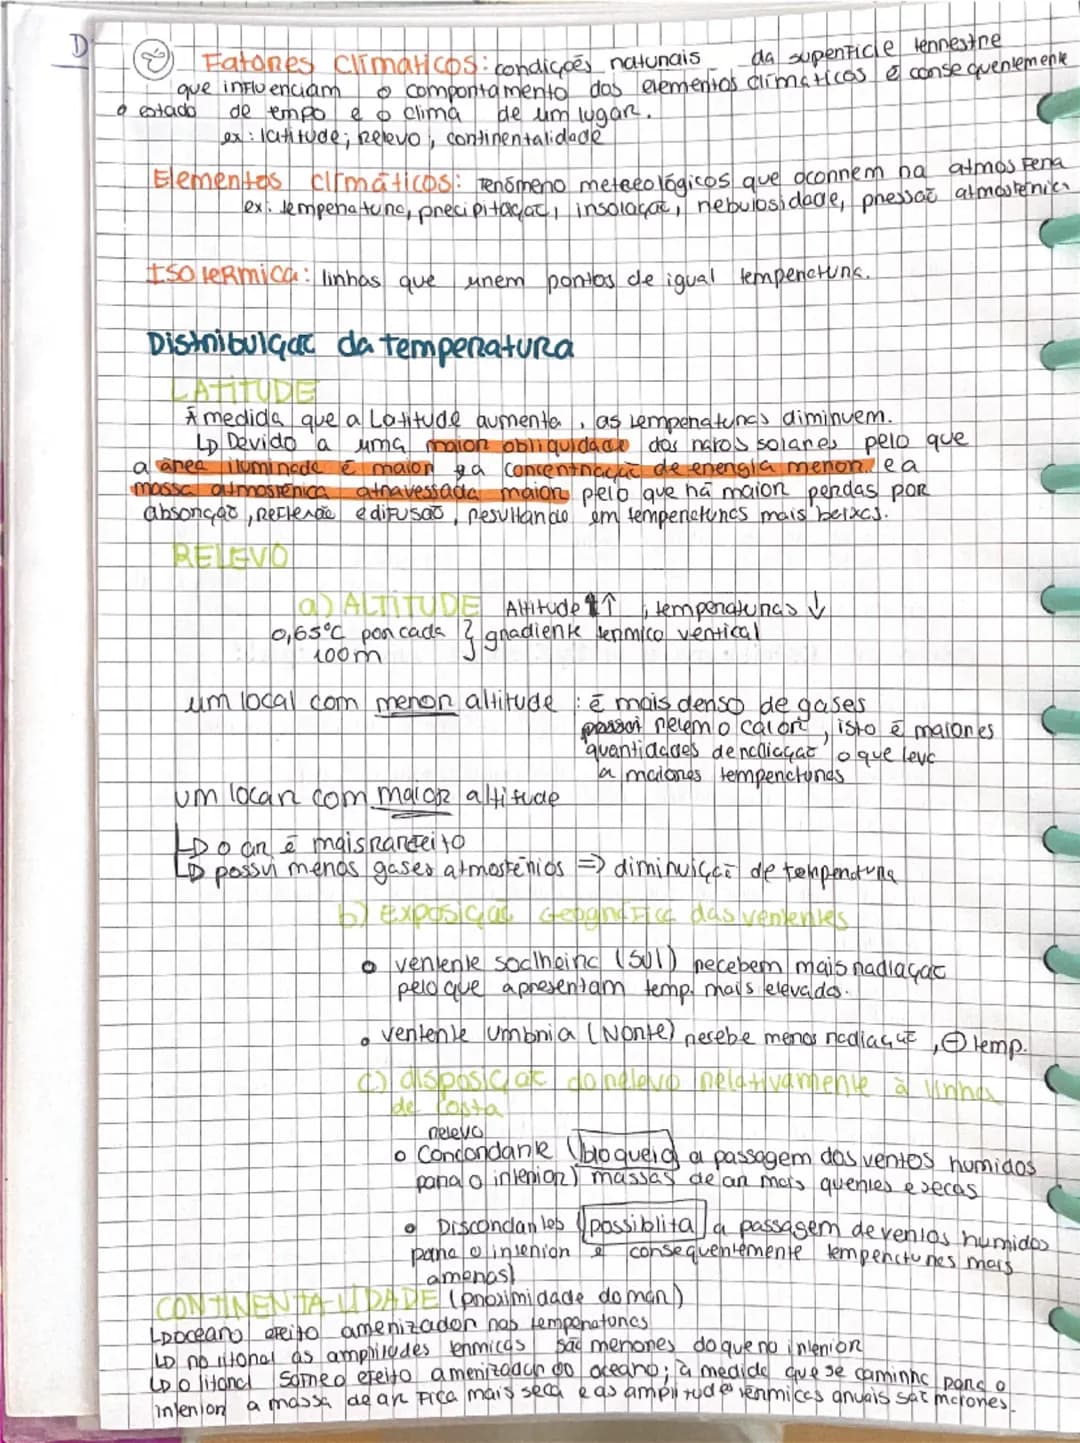 D
Fatores Climaticos: condições naturais da superfície terrestre
que influenciam o comportamento dos elementos climáticos e consequentemente
o estado de tempo e o clima de um lugar.
ex: latitude; relevo, continentalidade
Elementos climáticos: Fenómeno meteeológicos que ocorrem na atmosfera
ex: temperatura, precipitação, insolação, nebulosidade, pressão atmosférica
Isotermica: linhas que unem pontos de igual temperatura.
Distribuição da temperatura
LATITUDE
À medida que a Latitude aumenta, as temperaturas diminuem.
↳ Devido a uma maior obliquidade dos raios solares pelo que
a área iluminada é maior e a concentração de energia menor e a
massa atmosférica atravessada maior pelo que há maior perdas por
absorção, reflexão e difusão, resultando em temperaturas mais baixas.
RELEVO
a) ALTITUDE Altitude ↑, temperaturas ↓
0,65°C por cada } gradiente termico vertical
100m
um local com menor altitude : é mais denso de gases
possoi retem o calor, isto é maiores
quantidades de radiação o que leva
a maiores temperaturas
um locar com maior altitude
↳ o ar é mais rarefeito
↳ possui menos gases atmosférios => diminuição de temperatura
b) Exposição Geográfica das vertentes
• vertente soalheira (Sul) recebem mais radiação
pelo que apresentam temp. mais elevadas.
• vertente umbria (Norte) recebe menos radiação, ⊖ temp.
c) disposição do relevo relativamente à linha
de costa
relevo
• Concordante (bloqueia a passagem dos ventos humidos
para o interior) massas de ar mais quentes e secas
• Discordantes (possiblita a passagem de ventos humidos
para o interior e consequentemente temperatures mais
amenas)
CONTINENTALIDADE (proximidade do mar)
↳ oceano efeito amenizador nas temperaturas
↳ no litoral as amplitudes termicas são menores do que no interior
↳ o litoral sofre o efeito amenizador do oceano; à medida que se caminha para o
interior a massa de ar fica mais seca e as amplitudes térmicas anuais são maiores.